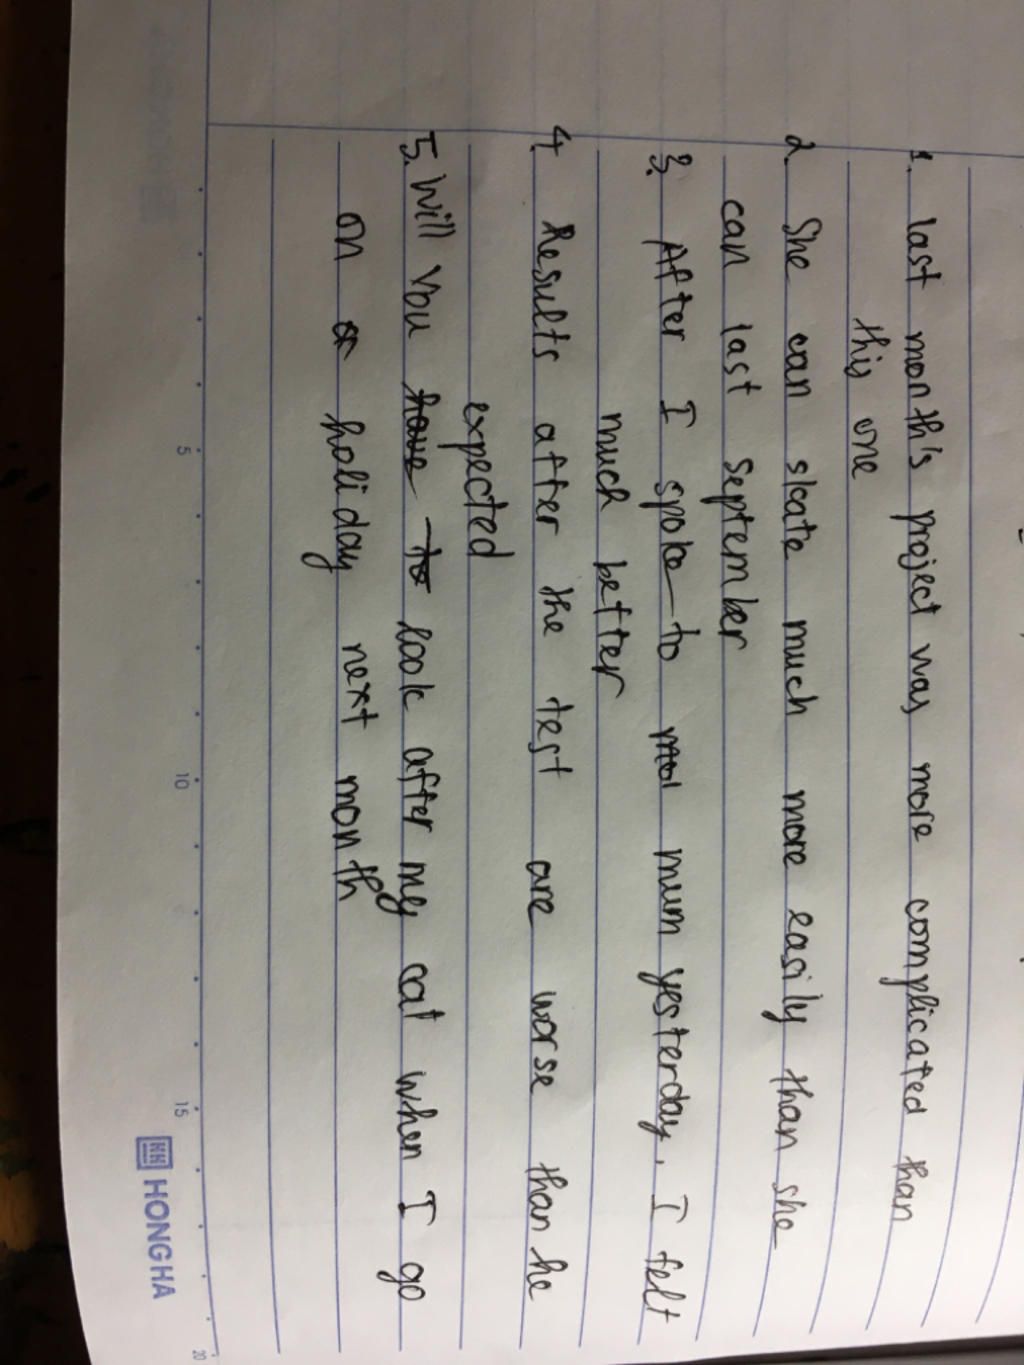 1. last month's project was more complicated than
this one
2. She can skate much more easily than she
can last September
3. After I spoke to mum yesterday, I felt
much better
4 Results after the test are worse than he
expected
5. Will you have to look after my cat when I go
on a holiday next month
5 10 15 20
HH HONGHA